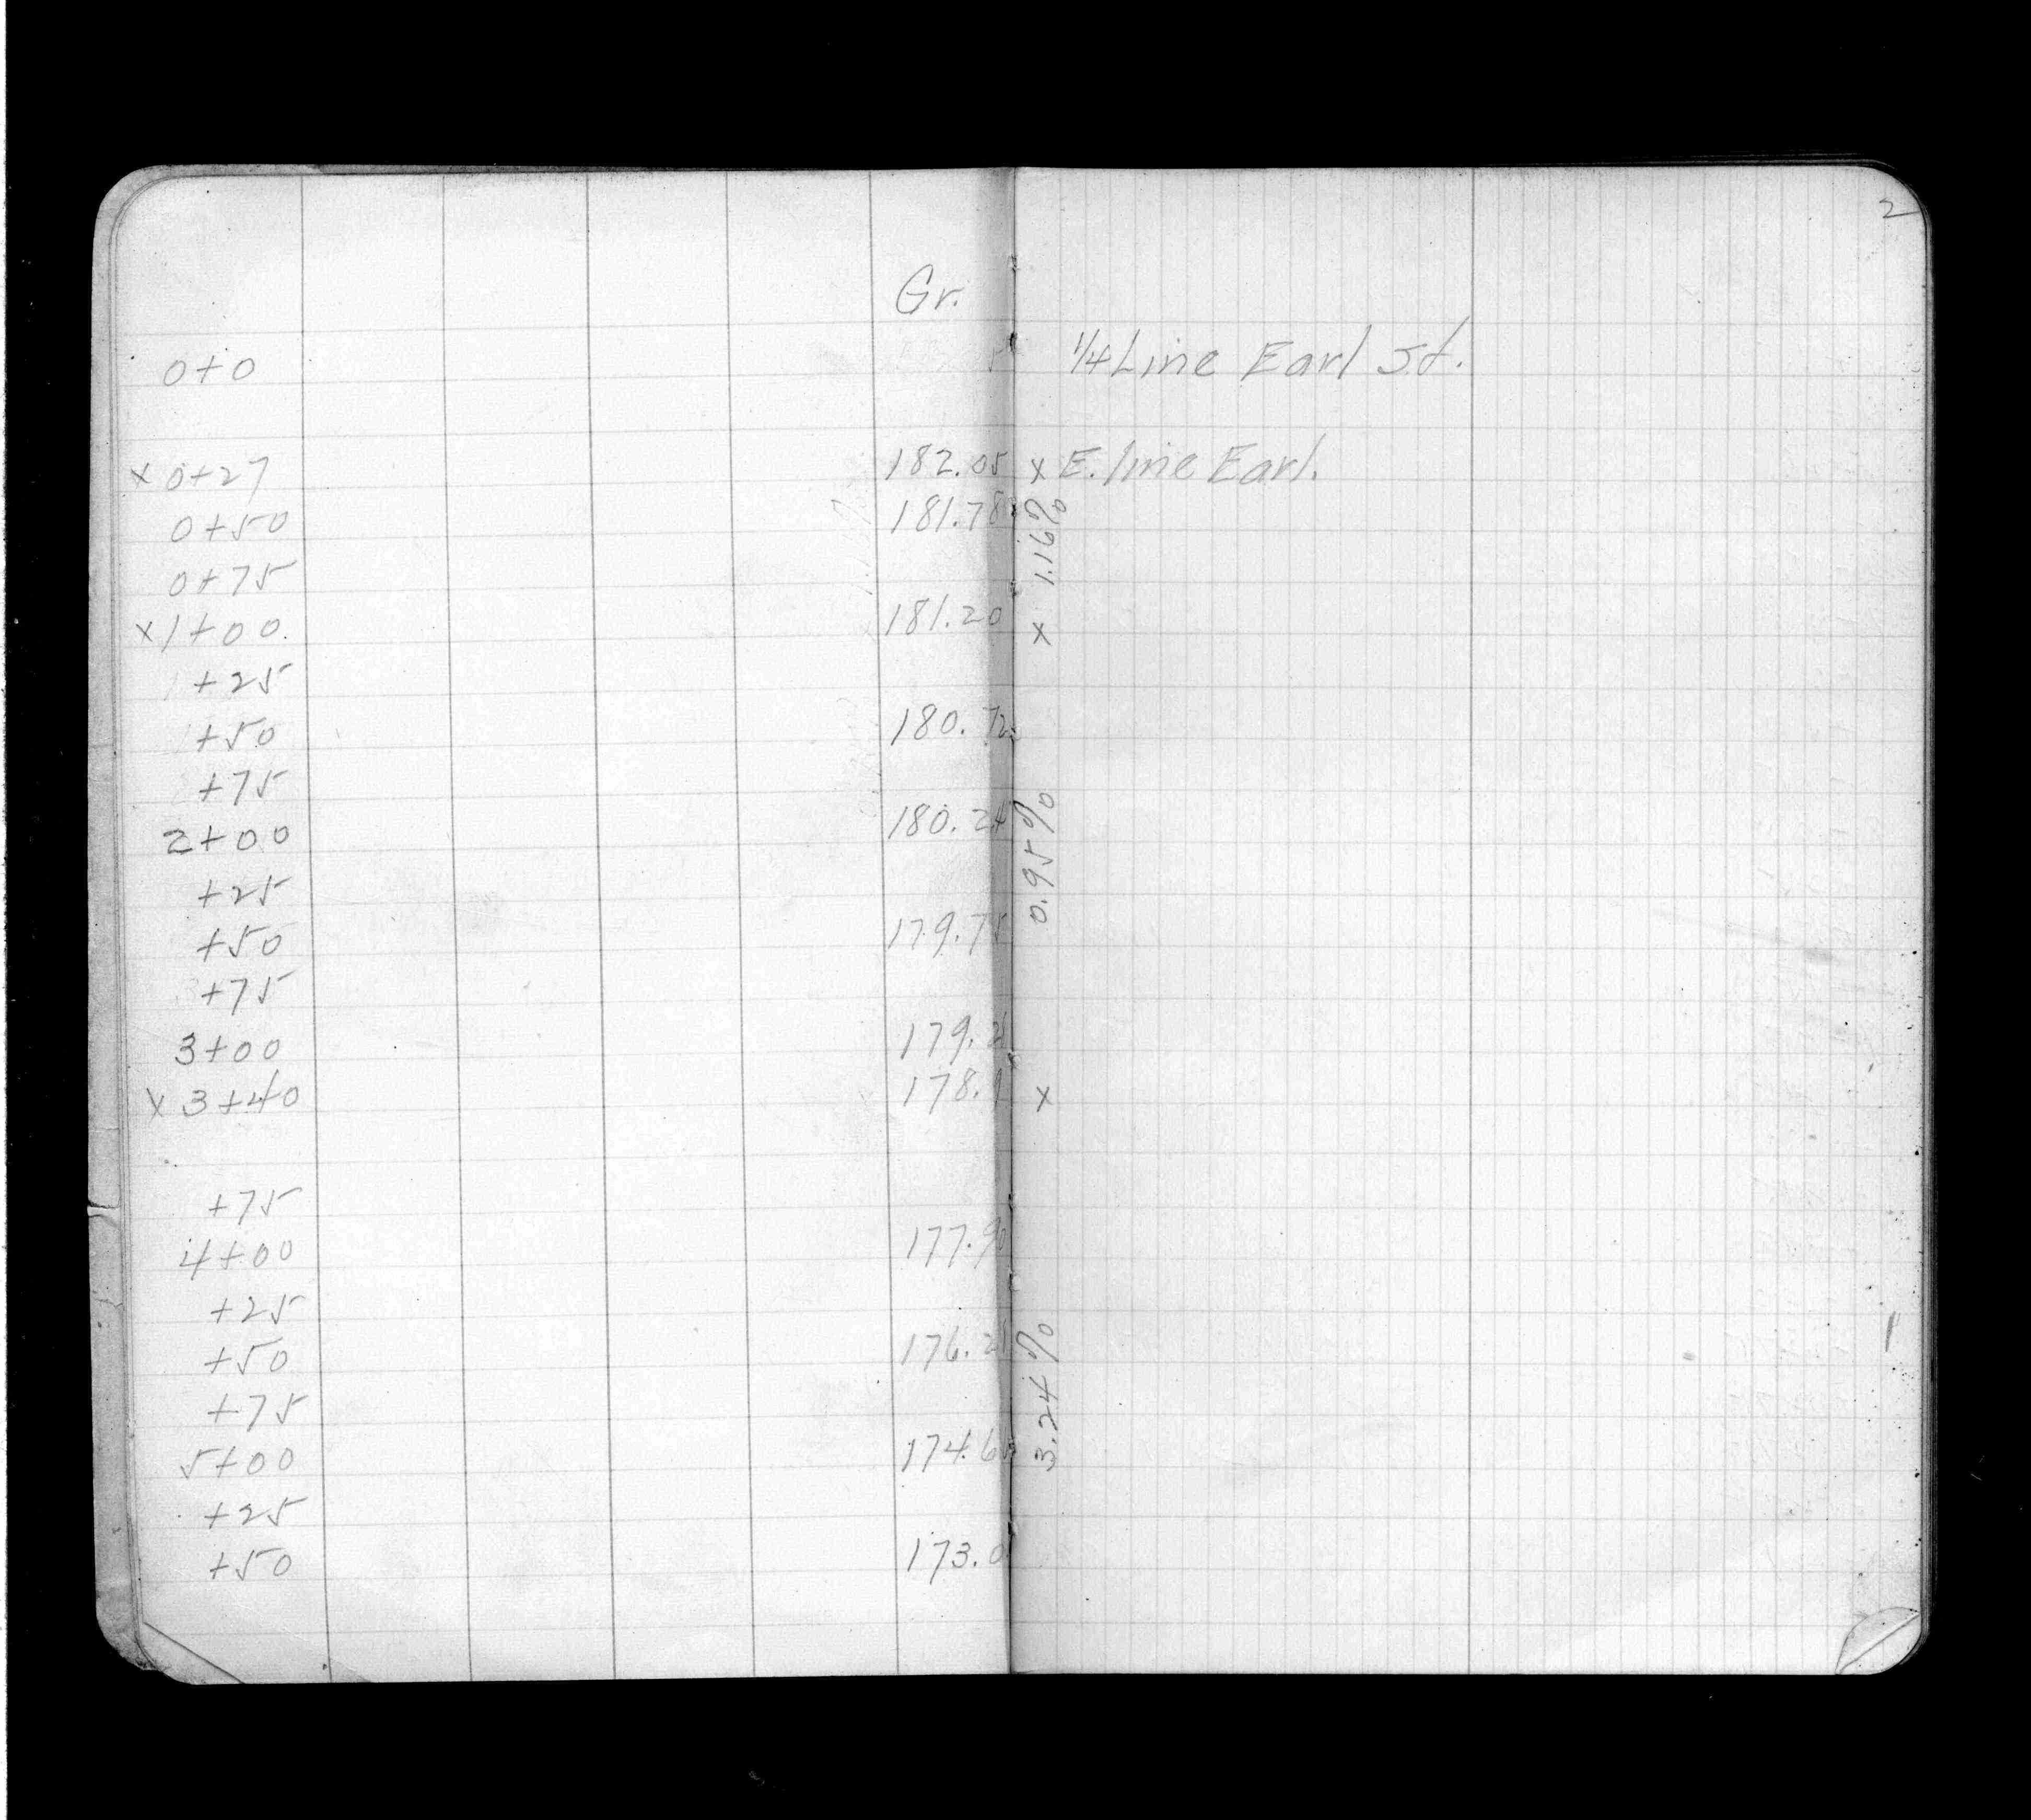 2
Gr.
0+0 1/4 Line Earl St.
x 0+27 182.05 x E. line Earl.
0+50 181.78 1.16%
0+75
x 1+00 181.20 x
1+25
1+50 180.72
+75
2+00 180.24 0.95%
+25
+50 179.75
+75
3+00 179.28
x 3+40 178.9 x
+75
4+00 177.90
+25
+50 176.28
+75
5+00 174.65 3.24%
+25
+50 173.0